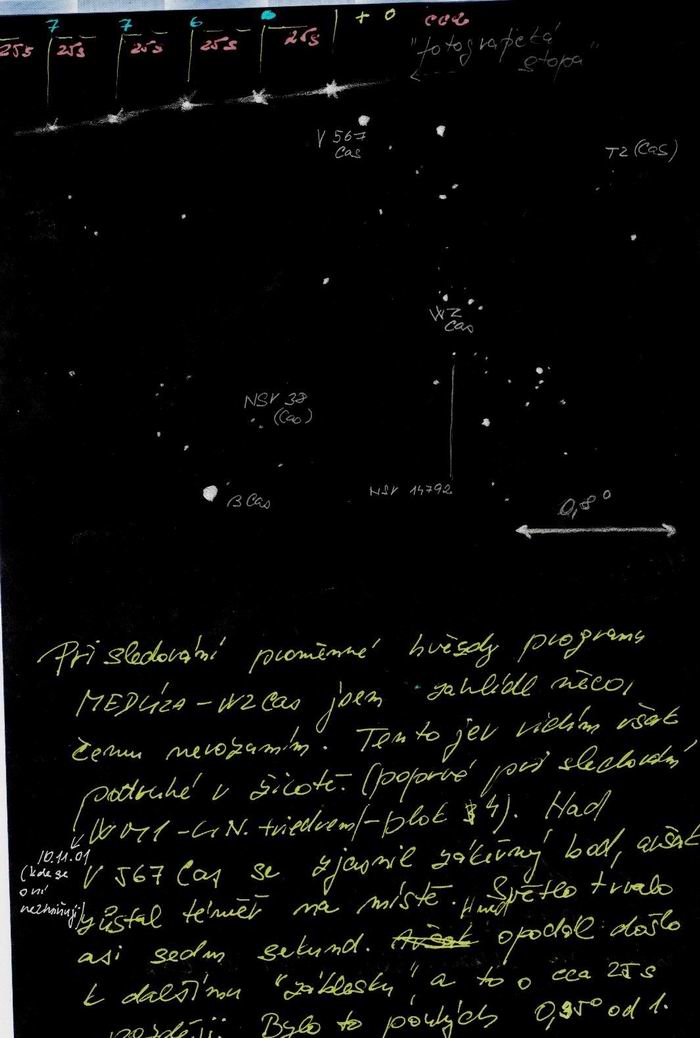 7 7 6 6 + 0 cca
25s 25s 25s 25s 25s
"fotografická
stopa"
V 567
Cas
TZ (Cas)
WZ
Cas
NSV 38
(Cas)
β Cas
NSV 14792
0,8°
Při sledování proměnné hvězdy programu
MEDÚZA - WZ Cas jsem zahlédl něco,
čemu nerozumím. Tento jev vidím však
podruhé v životě. (poprvé při sledování
triedrem - blok 4). Nad
10.11.01
(kde se
o ní
nezmiňuji)
V 567 Cas se zjasnil zářivý bod, avšak
zůstal téměř na místě. Světlo trvalo
asi sedm sekund. Hned opodál došlo
k dalšímu "záblesku" a to o cca 25s
později. Bylo to pouhých 0,35° od 1.